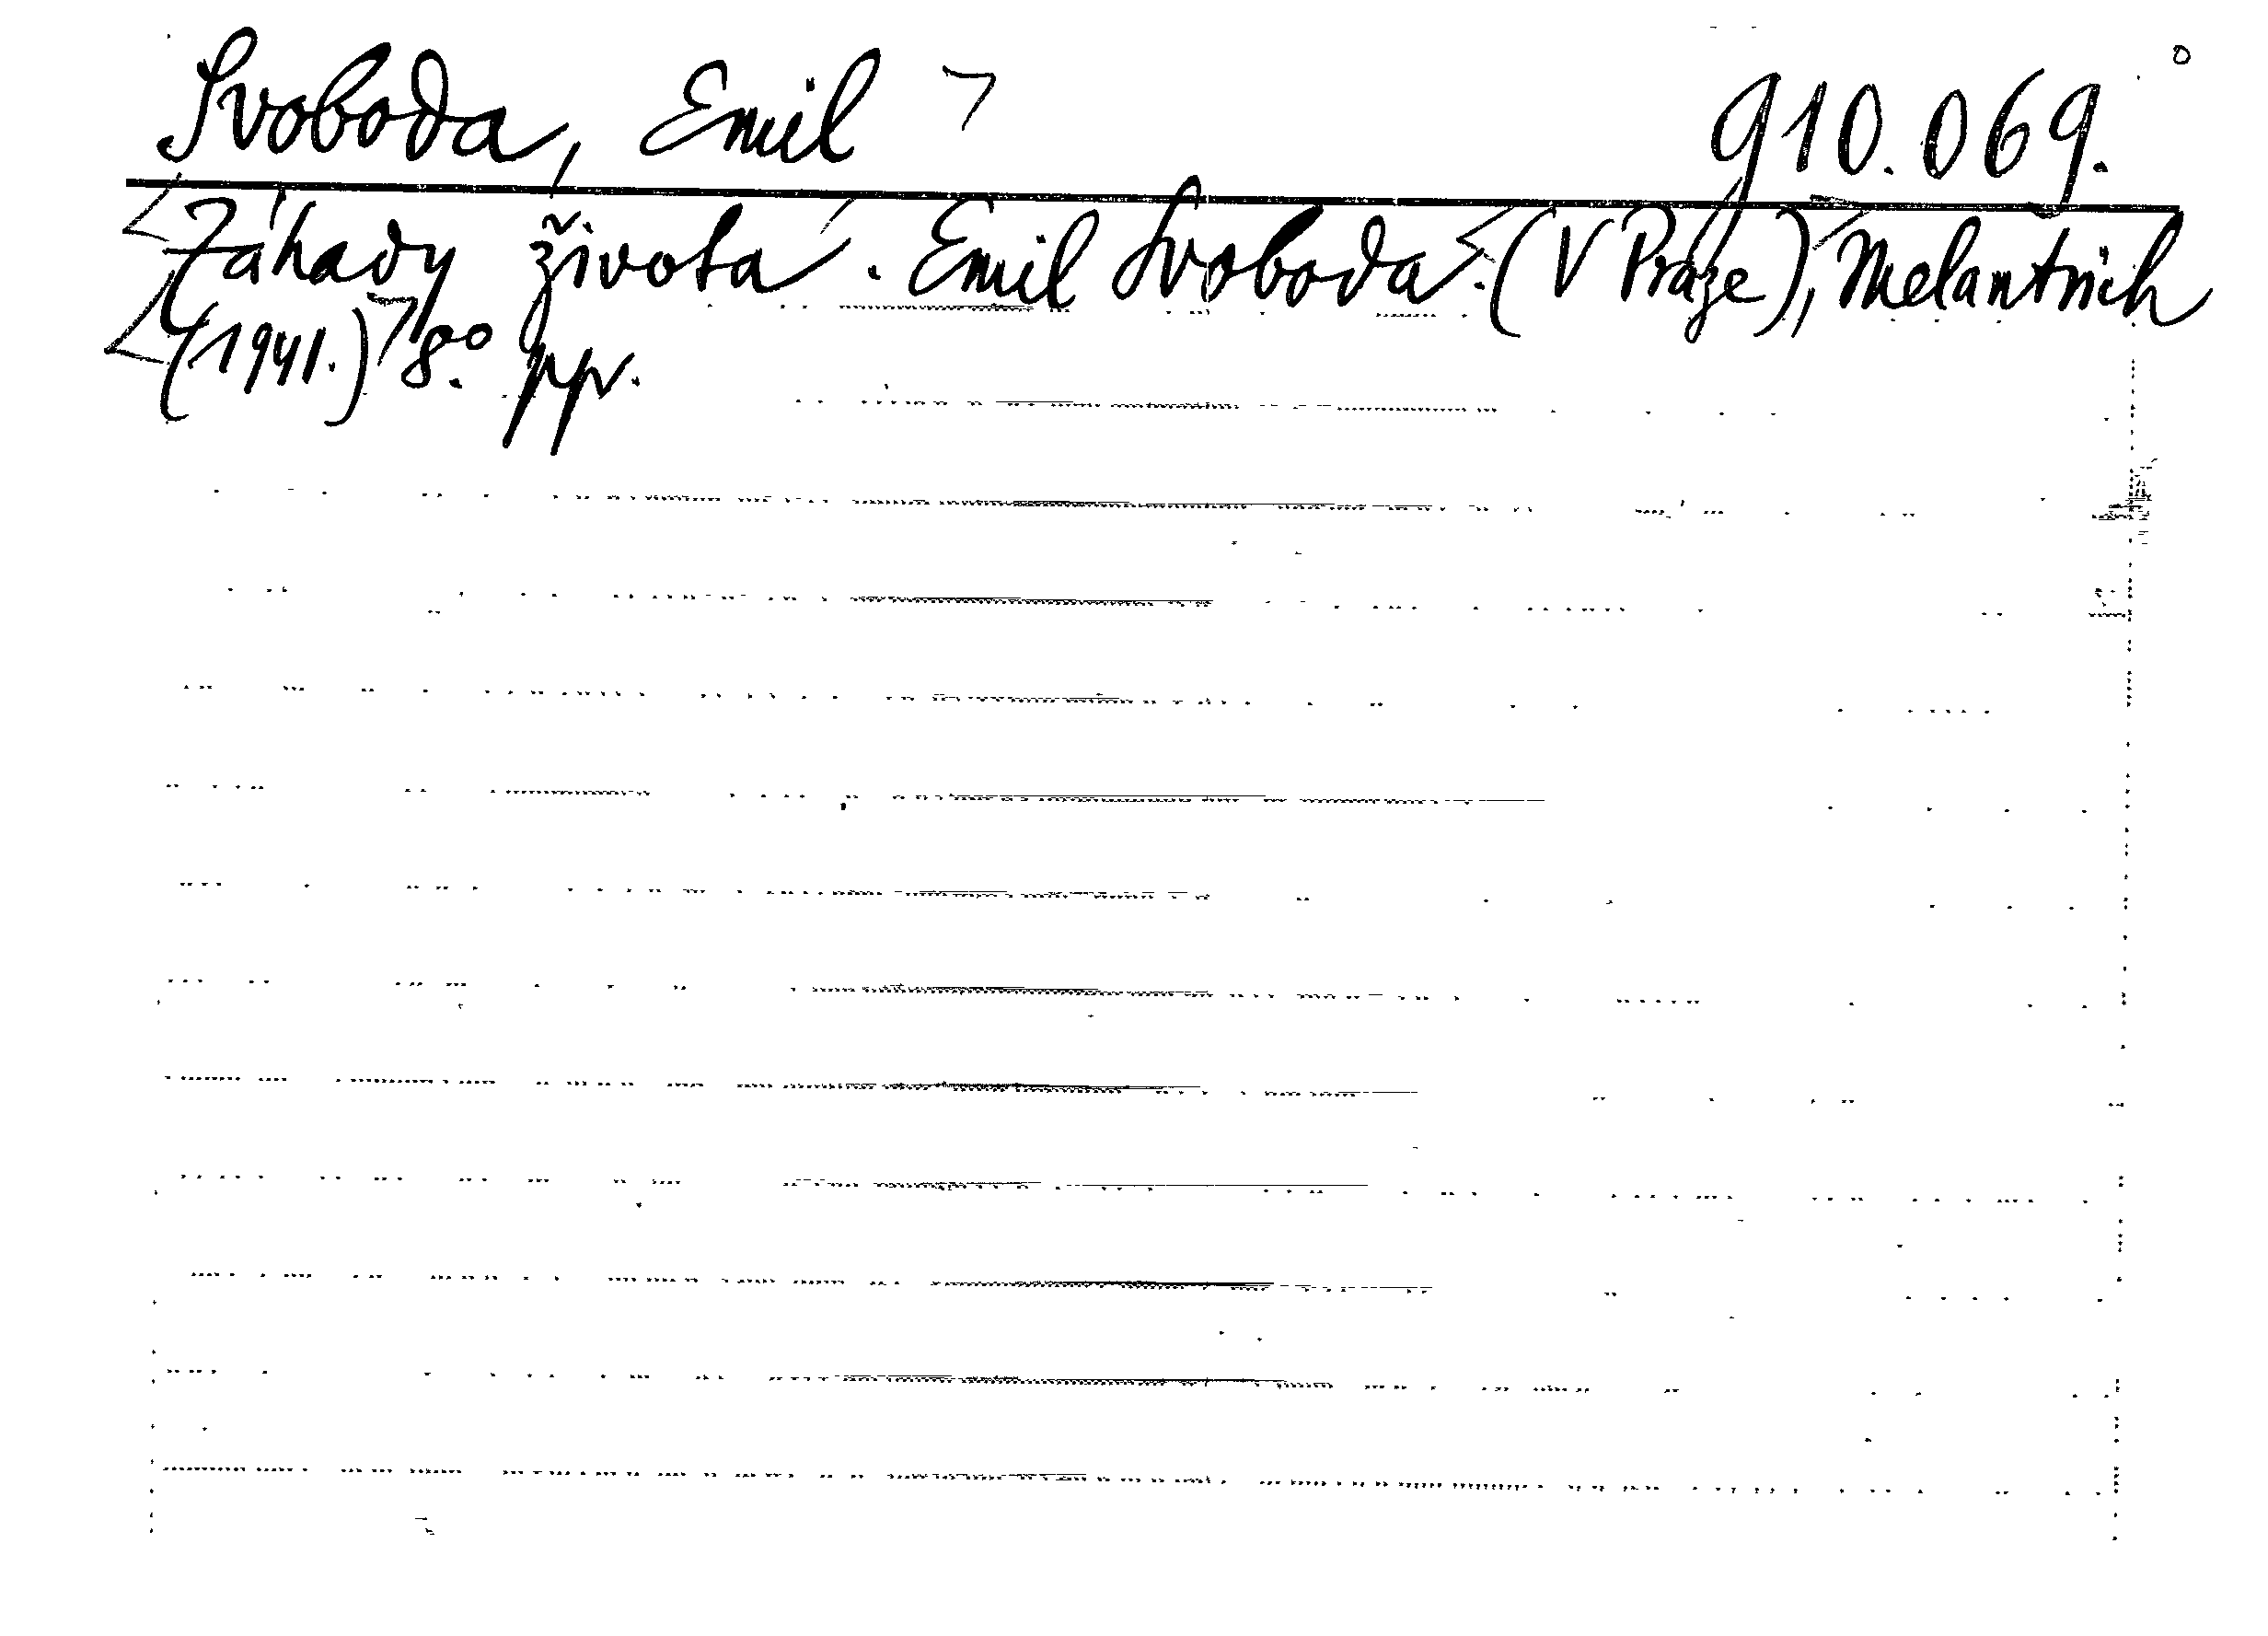 Svoboda, Emil 910.069.
Záhady života. Emil Svoboda. (V Praze), Melantrich
(1941.) 8° ppv.